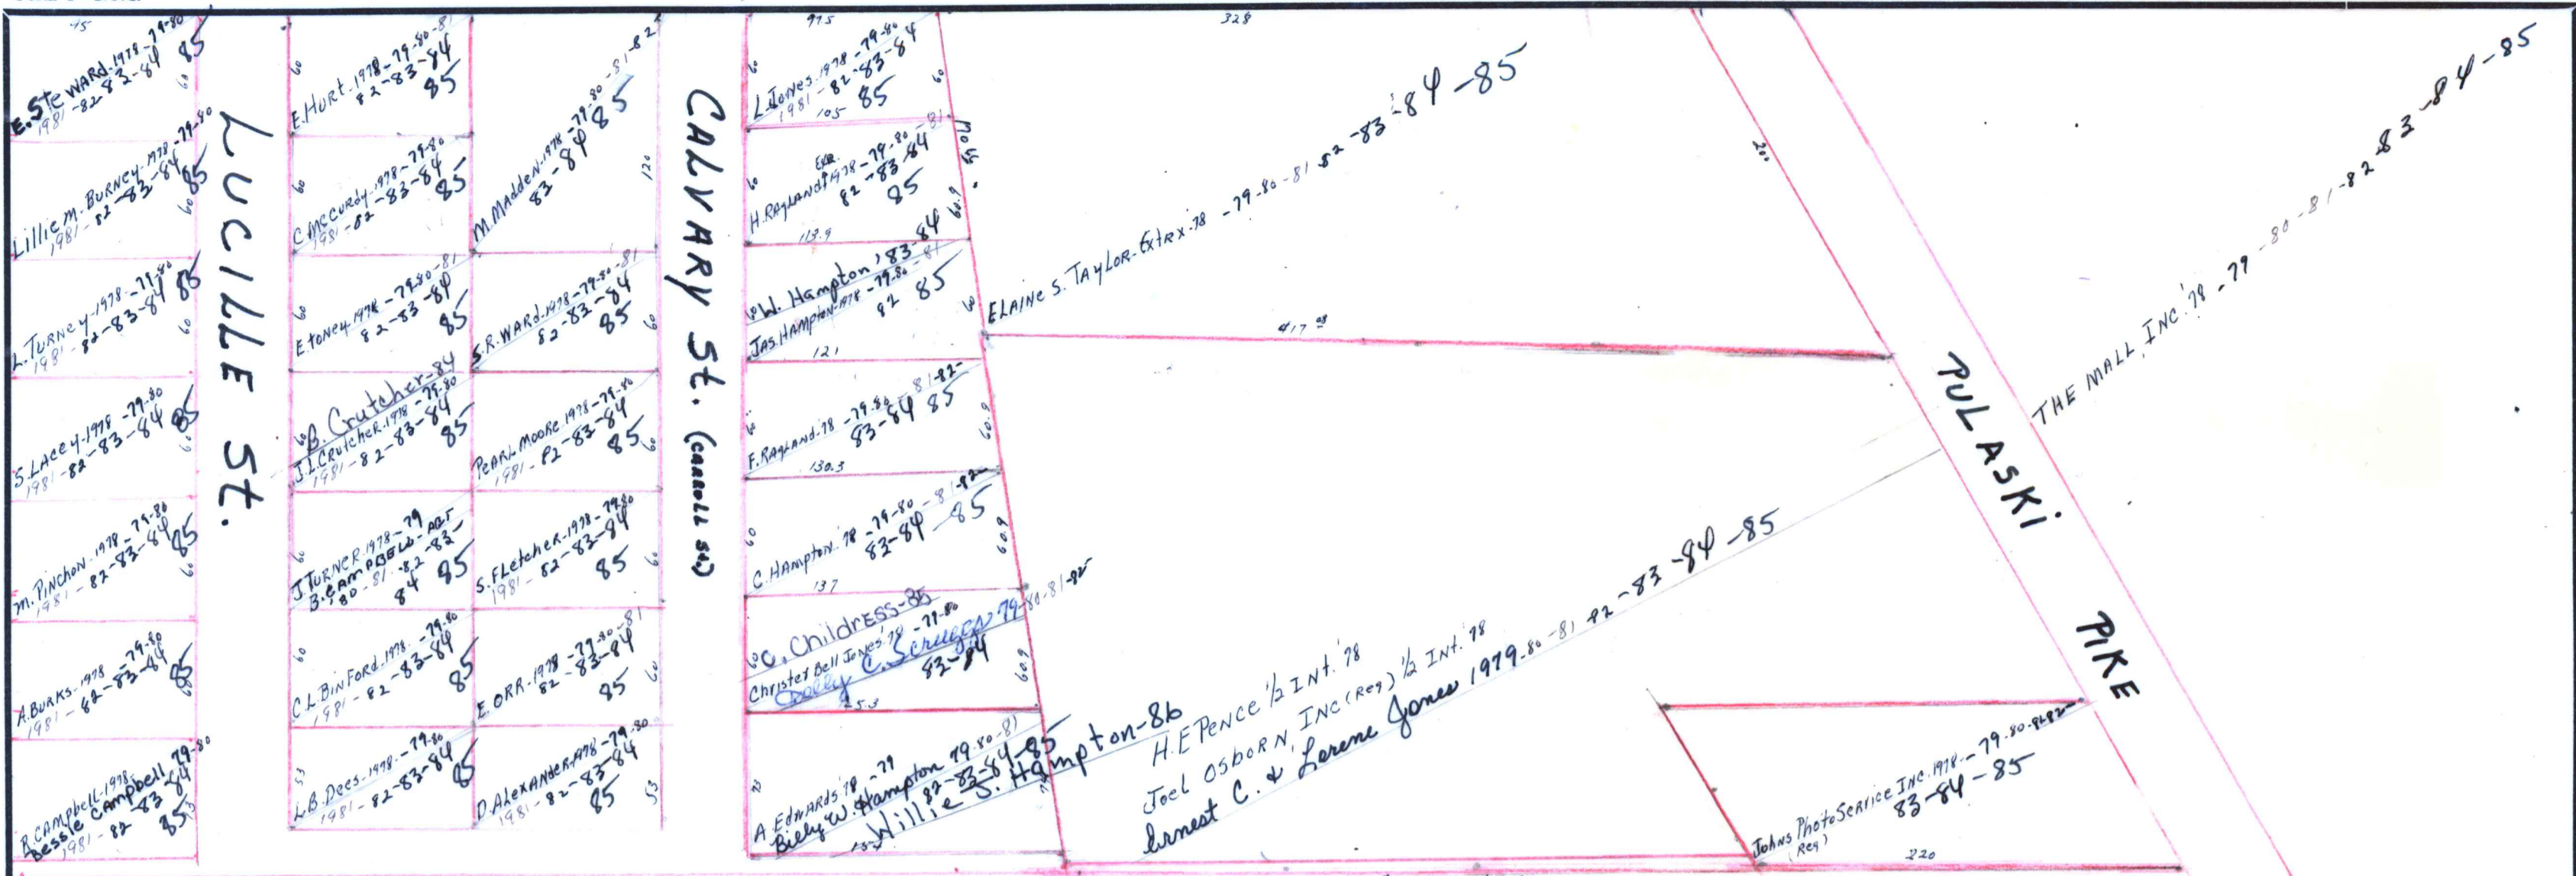 75
E. SteWARd-1978-79-80
1981-82 83-84 85
60
Lillie M. BURNEY-1978-79-80
1981-82-83-84 85
60
L. TURNEY-1978-79-80
1981-82-83-84 85
60
S. LACEY-1978-79-80
1981-82-83-84 85
60
M. PINChON-1978-79-80
1981-82-83-84 85
60
A. BURKS-1978-79-80
1981-82-83-84 85
60
R. CAMPbell-1978-
Bessie CAMPbell 79-80
1981-82-83-84
85
53
LUCILLE St.
60
E. HURt-1978-79-80-81
82-83-84
85
60
C. McCURdy-1978-79-80
1981-82-83-84
85
60
E. toney-1978-79-80-81
82-83-84
85
60
B. Crutcher-84
J.I. CRUtCHER-1978-79-80
1981-82-83-84
85
60
J. TURNER-1978-79
B. CAMPBELL-ABT
'80-81-82-83-
84 85
60
C.L. BiNFORd-1978-79-80
1981-82-83-84
85
53
L.B. Dees-1978-79-80
1981-82-83-84
85
M. MAddeN-1978-79-80-81-82
83-84 85
120
S.R. WARd-1978-79-80-81
82-83-84
85
60
PEARL MOORE-1978-79-80
1981-82-83-84
85
60
S. FLEtCHER-1978-79-80
1981-82-83-84
85
60
E. ORR-1978-79-80-81
82-83-84
85
60
D. ALEXANDER-1978-79-80
1981-82-83-84
85
53
CALVARY St. (CARROLL St.)
97.5
60
L. JONES-1978-79-80
1981-82-83-84
85
105
60
EXR.
H. RAGLAND-1978-79-80-81
82-83-84
85
60.9
113.9
60
W. Hampton '83-84
JAS. HAMPTON-1978-79-80-81
82 85
60
121
F. RAGLAND-78-79-80-81-82-
83-84 85
60.9
130.3
60
C. HAMPTON-'78-79-80-81-82-
83-84-85
60.9
137
60
C. ChildRESS-85
Christer Bell Jones '78-79-80
Dolly C. Scruggs 79-80-81-82
83-84
60.9
A. EdwARds '78-79
Billy W. Hampton 79-80-81
82-83-84-85
Willie J. Hampton-86
328
ELAINE S. TAYLOR-Extrx-'78-79-80-81-82-83-84-85
200
417
H.E PENCE 1/2 INt. '78
Joel OSboRN, INC (Reg) 1/2 INt. '78
Ernest C. & Lorene Jones 1979-80-81-82-83-84-85
PULASKI PIKE
THE MALL, INC. '78-79-80-81-82-83-84-85
JohNs Photo SERVICE INC. 1978-79-80-81-82-
(Reg) 83-84-85
220